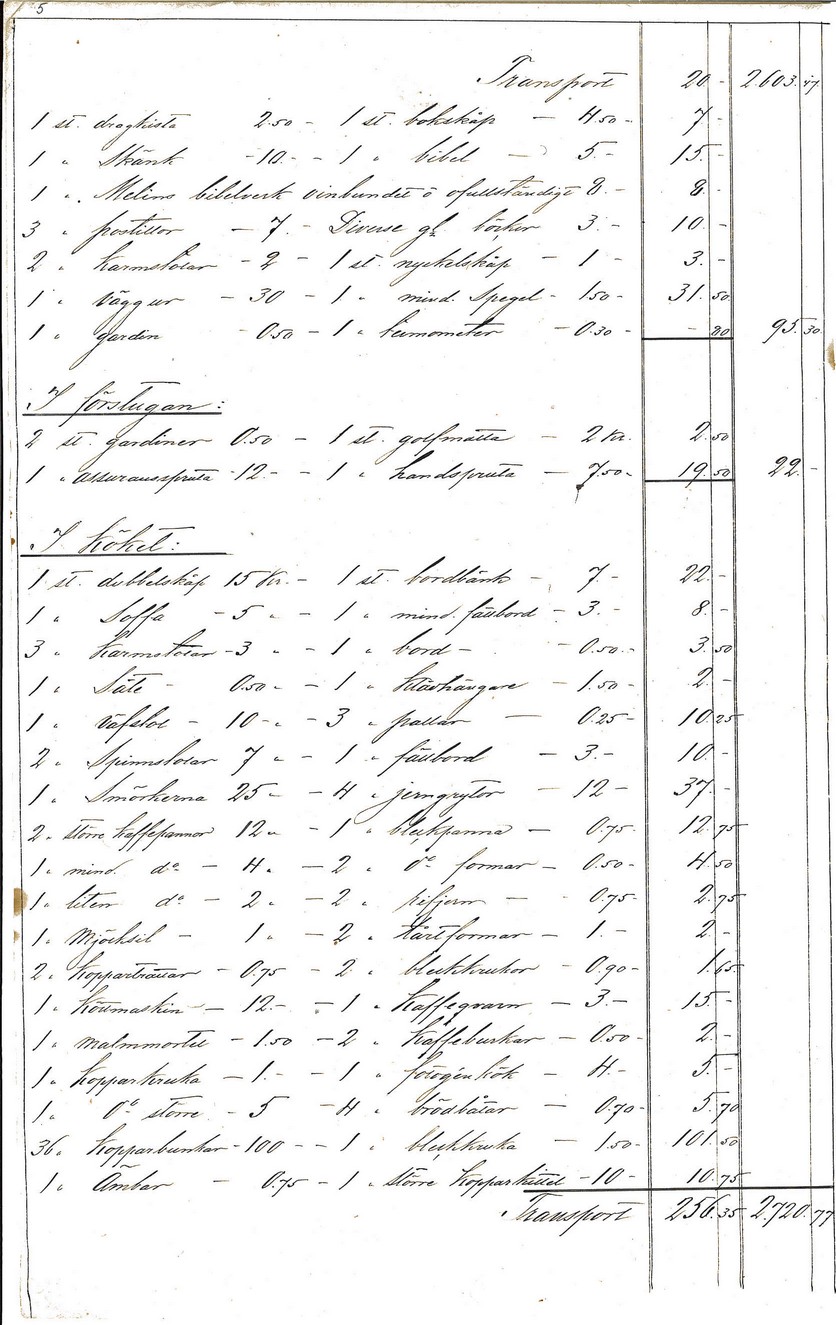 5
Transport 20 - 2.603.47
1 st. dragkista 2.50 - 1 st. bokskåp - 4.50 - 7 -
1 " Skänk - 10. - - 1 " bibel - 5. - 15. -
1 " Melins bibelverk oinbundet o ofullständigt 8. - 8. -
3 " postillor - 7. - Diverse gl. böcker 3. - 10. -
2 " Karmstolar - 2 - 1 st. nyckelskåp - 1 - 3. -
1 " Väggur - 30 - 1 " mind. Spegel - 1.50 - 31.50
1 " gardin 0.50 - 1 " termometer - 0.30 - - 80 95.30
I förstugan:
2 st. gardiner 0.50 - 1 st. golfmatta - 2 Kr. 2.50
1 " assuransspruta - 12. - - 1 " handspruta - 7.50 - 19.50 22. -
I Köket:
1 st. dubbelskåp 15 Kr. - 1 st. bordbänk - 7. - 22. -
1 " Soffa - 5 " - 1 " mind. fällbord - 3. - 8. -
3 " Karmstolar - 3 " - 1 " bord - - 0.50 - 3.50
1 " Säte - 0.50 " - 1 " Klädhängare - 1.50 - 2 -
1 " Väfstol - 10 - " - 3 " pallar - 0.25 - 10.25
2 " Spinnstolar 7 " - 1 " fällbord - 3. - 10. -
1 " Smörkerna 25 " - 4 " jerngrytor - 12 - 37. -
2 " större kaffepannor 12 " - 1 " bleckpanna - 0.75 - 12.75
1 " mind. do - 4 " - 2 " do formar - 0.50 - 4.50
1 " liten do - 2 " - 2 " - 0.75 - 2.75
1 " Mjöchsil - 1 " - 2 " tårtformar - 1. - 2. -
2 " Koppartrattar - 0.75 - 2 " bleckkrukor - 0.90 - 1.65
1 " - 12. - - 1 " Kaffeqvarn - 3. - 15 -
1 " Malmmortel - 1.50 - 2 " Kaffeburkar - 0.50 - 2. -
1 " Kopparkruka - 1. - - 1 " fotogénkök - 4. - 5. -
1 " do större - 5 - 4 " brödbåtar - 0.70 - 5.70
36 " Kopparbunkar - 100 - - 1 " bleckkruka - 1.50 - 101.50
1 " Ämbar - 0.75 - 1 " större Kopparkittel - 10 - 10.75
Transport 256.35 2.720.77